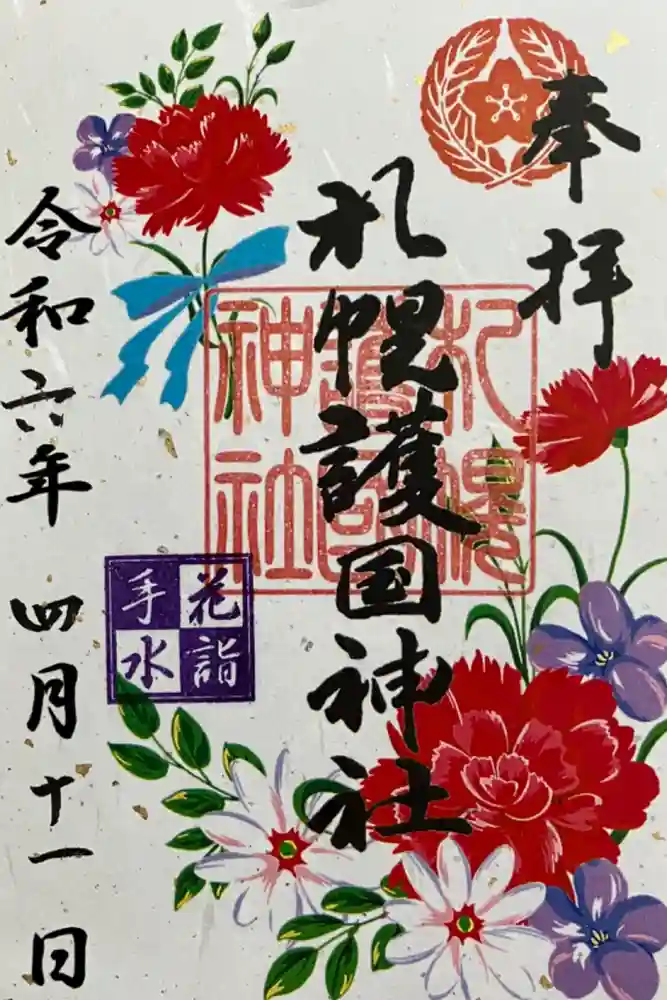 奉拝
札幌護国神社
札幌
護国
神社
花詣
手水
令和六年 四月十一日